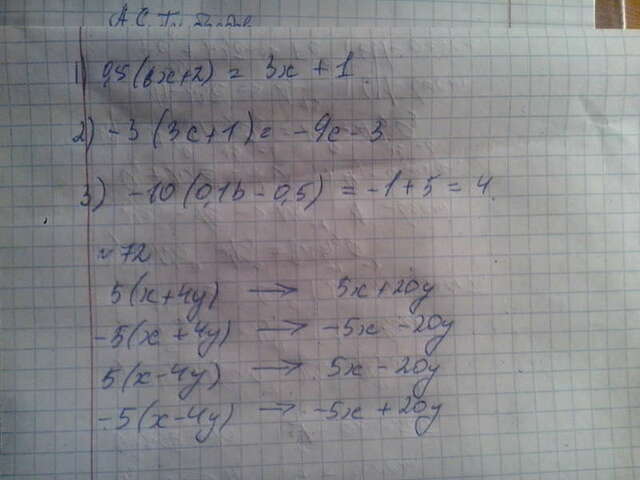 1) 0,5(6x+2) = 3x + 1
2) -3 (3c+1) = -9c - 3
3) -10 (0,1b - 0,5) = -1 + 5 = 4.
№72
5(x+4y) → 5x+20y
-5(x+4y) → -5x -20y
5(x-4y) → 5x - 20y
-5(x-4y) → -5x + 20y